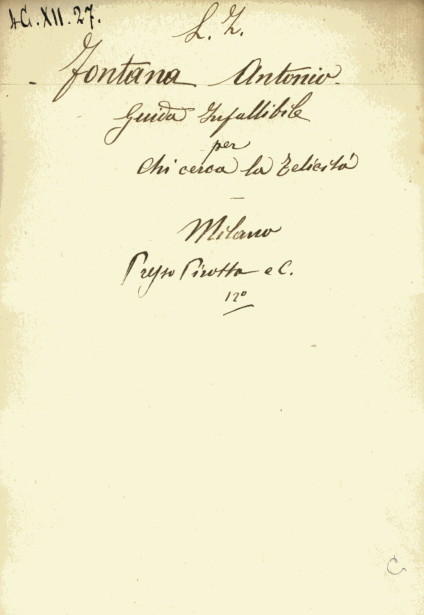 4G.XII.27.
L. Z.
Fontana Antonio.
Guida Infallibile
per
Chi cerca la Felicità
Milano
Presso Pirotta e C.
12º
C